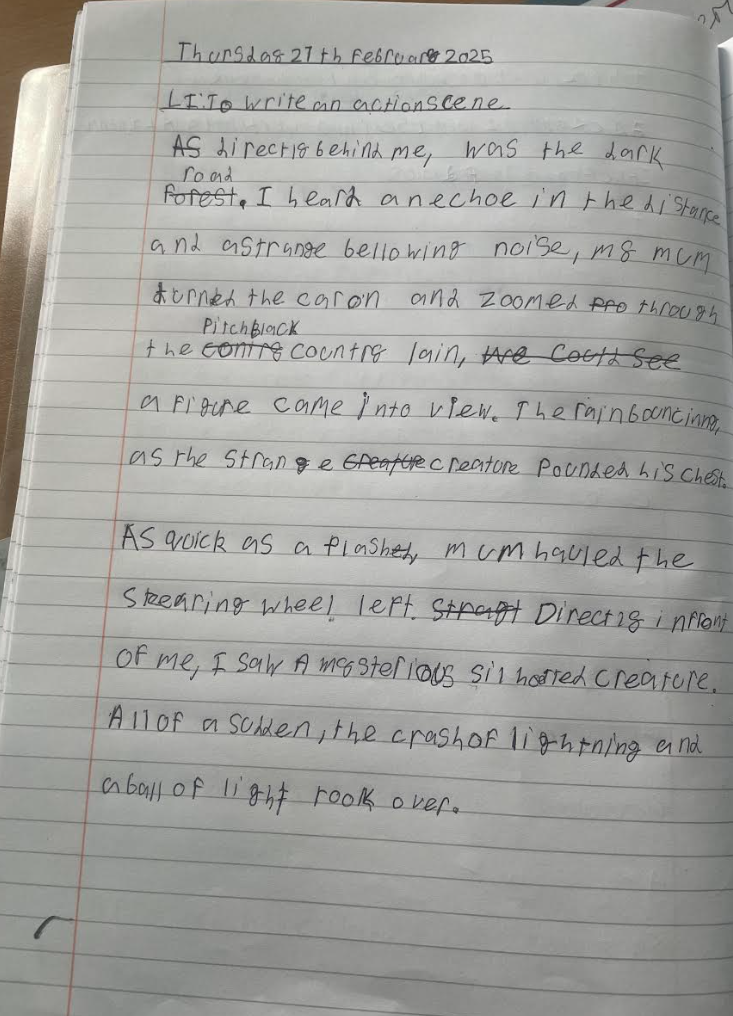 Thursday 27th February 2025
LI:To write an action scene
As directly behind me, was the dark
road
forest. I heard an echoe in the distance
and a strange bellowing noise, my mum
turned the car on and zoomed pro through
Pitchblack
the contry country lain, we could see
a figure came into view. The rain bouncinng,
as the strange creature creature pounded his chest.
As quick as a flash, mum hauled the
stearing wheel left. Stragt Directly infront
of me, I saw A mysterious silhotted creature.
All of a sudden, the crash of lightning and
a ball of light took over.